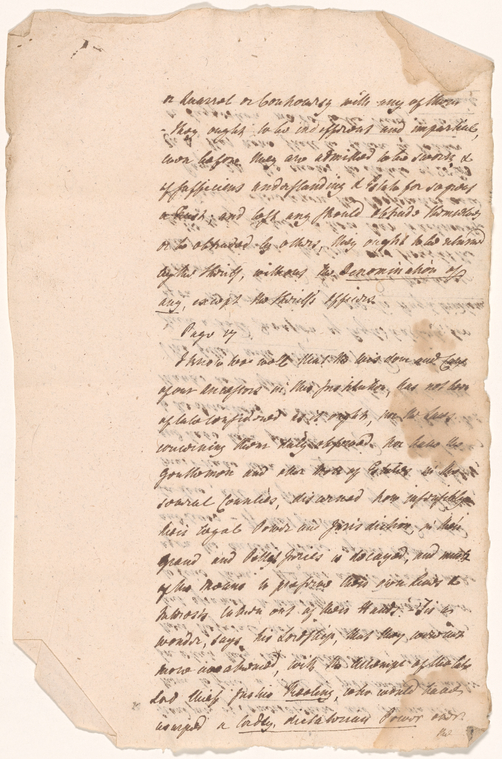 or Quarrel or Controversy with any of them
they ought to be indifferent and impartial,
even before they are admitted to be sworn, &
of sufficient understanding & Estate for so great
a Trust, and lest any should obtrude themselves
or be obtruded by others, they ought to be returned
by the Sheriff, without the Denomination of
any, except the Sheriffs officers
Page 17
I know wee well that the wisdom and Care
of our Ancestors in this Institution, has not been
of late considered as it ought, nor the Laws
concerning them duly observed nor have the
Gentlemen and other men of Estates in the
several Counties, discerned how insensibly
their Legal Power and Jurisdiction in their
Grand and Petit Juries is decayed, and much
of the means to preserve their own lives &
Interests, taken out of their Hands. Tis a
wonder, says his Lordship, that they were not
more awakened, with the Attempt of the late
Lord Chief Justice Keeling, who would have
usurped a Lordly, dictatorian Power over
the